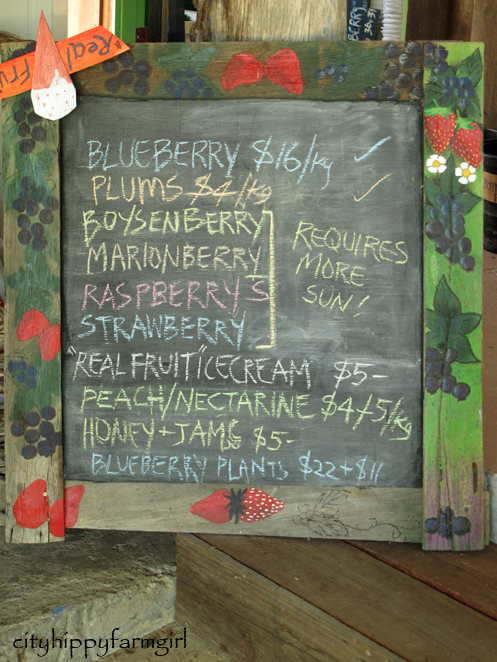 "Real
Fru
BLUEBERRY $16/kg ✓
PLUMS $4/kg ✓
BOYSENBERRY
MARIONBERRY
RASPBERRY'S
STRAWBERRY
REQUIRES
MORE
SUN!
"REAL FRUIT" ICECREAM $5-
PEACH/NECTARINE $4+5/kg
HONEY + JAMS $5-
BLUEBERRY PLANTS $22+$11
cityhippyfarmgirl